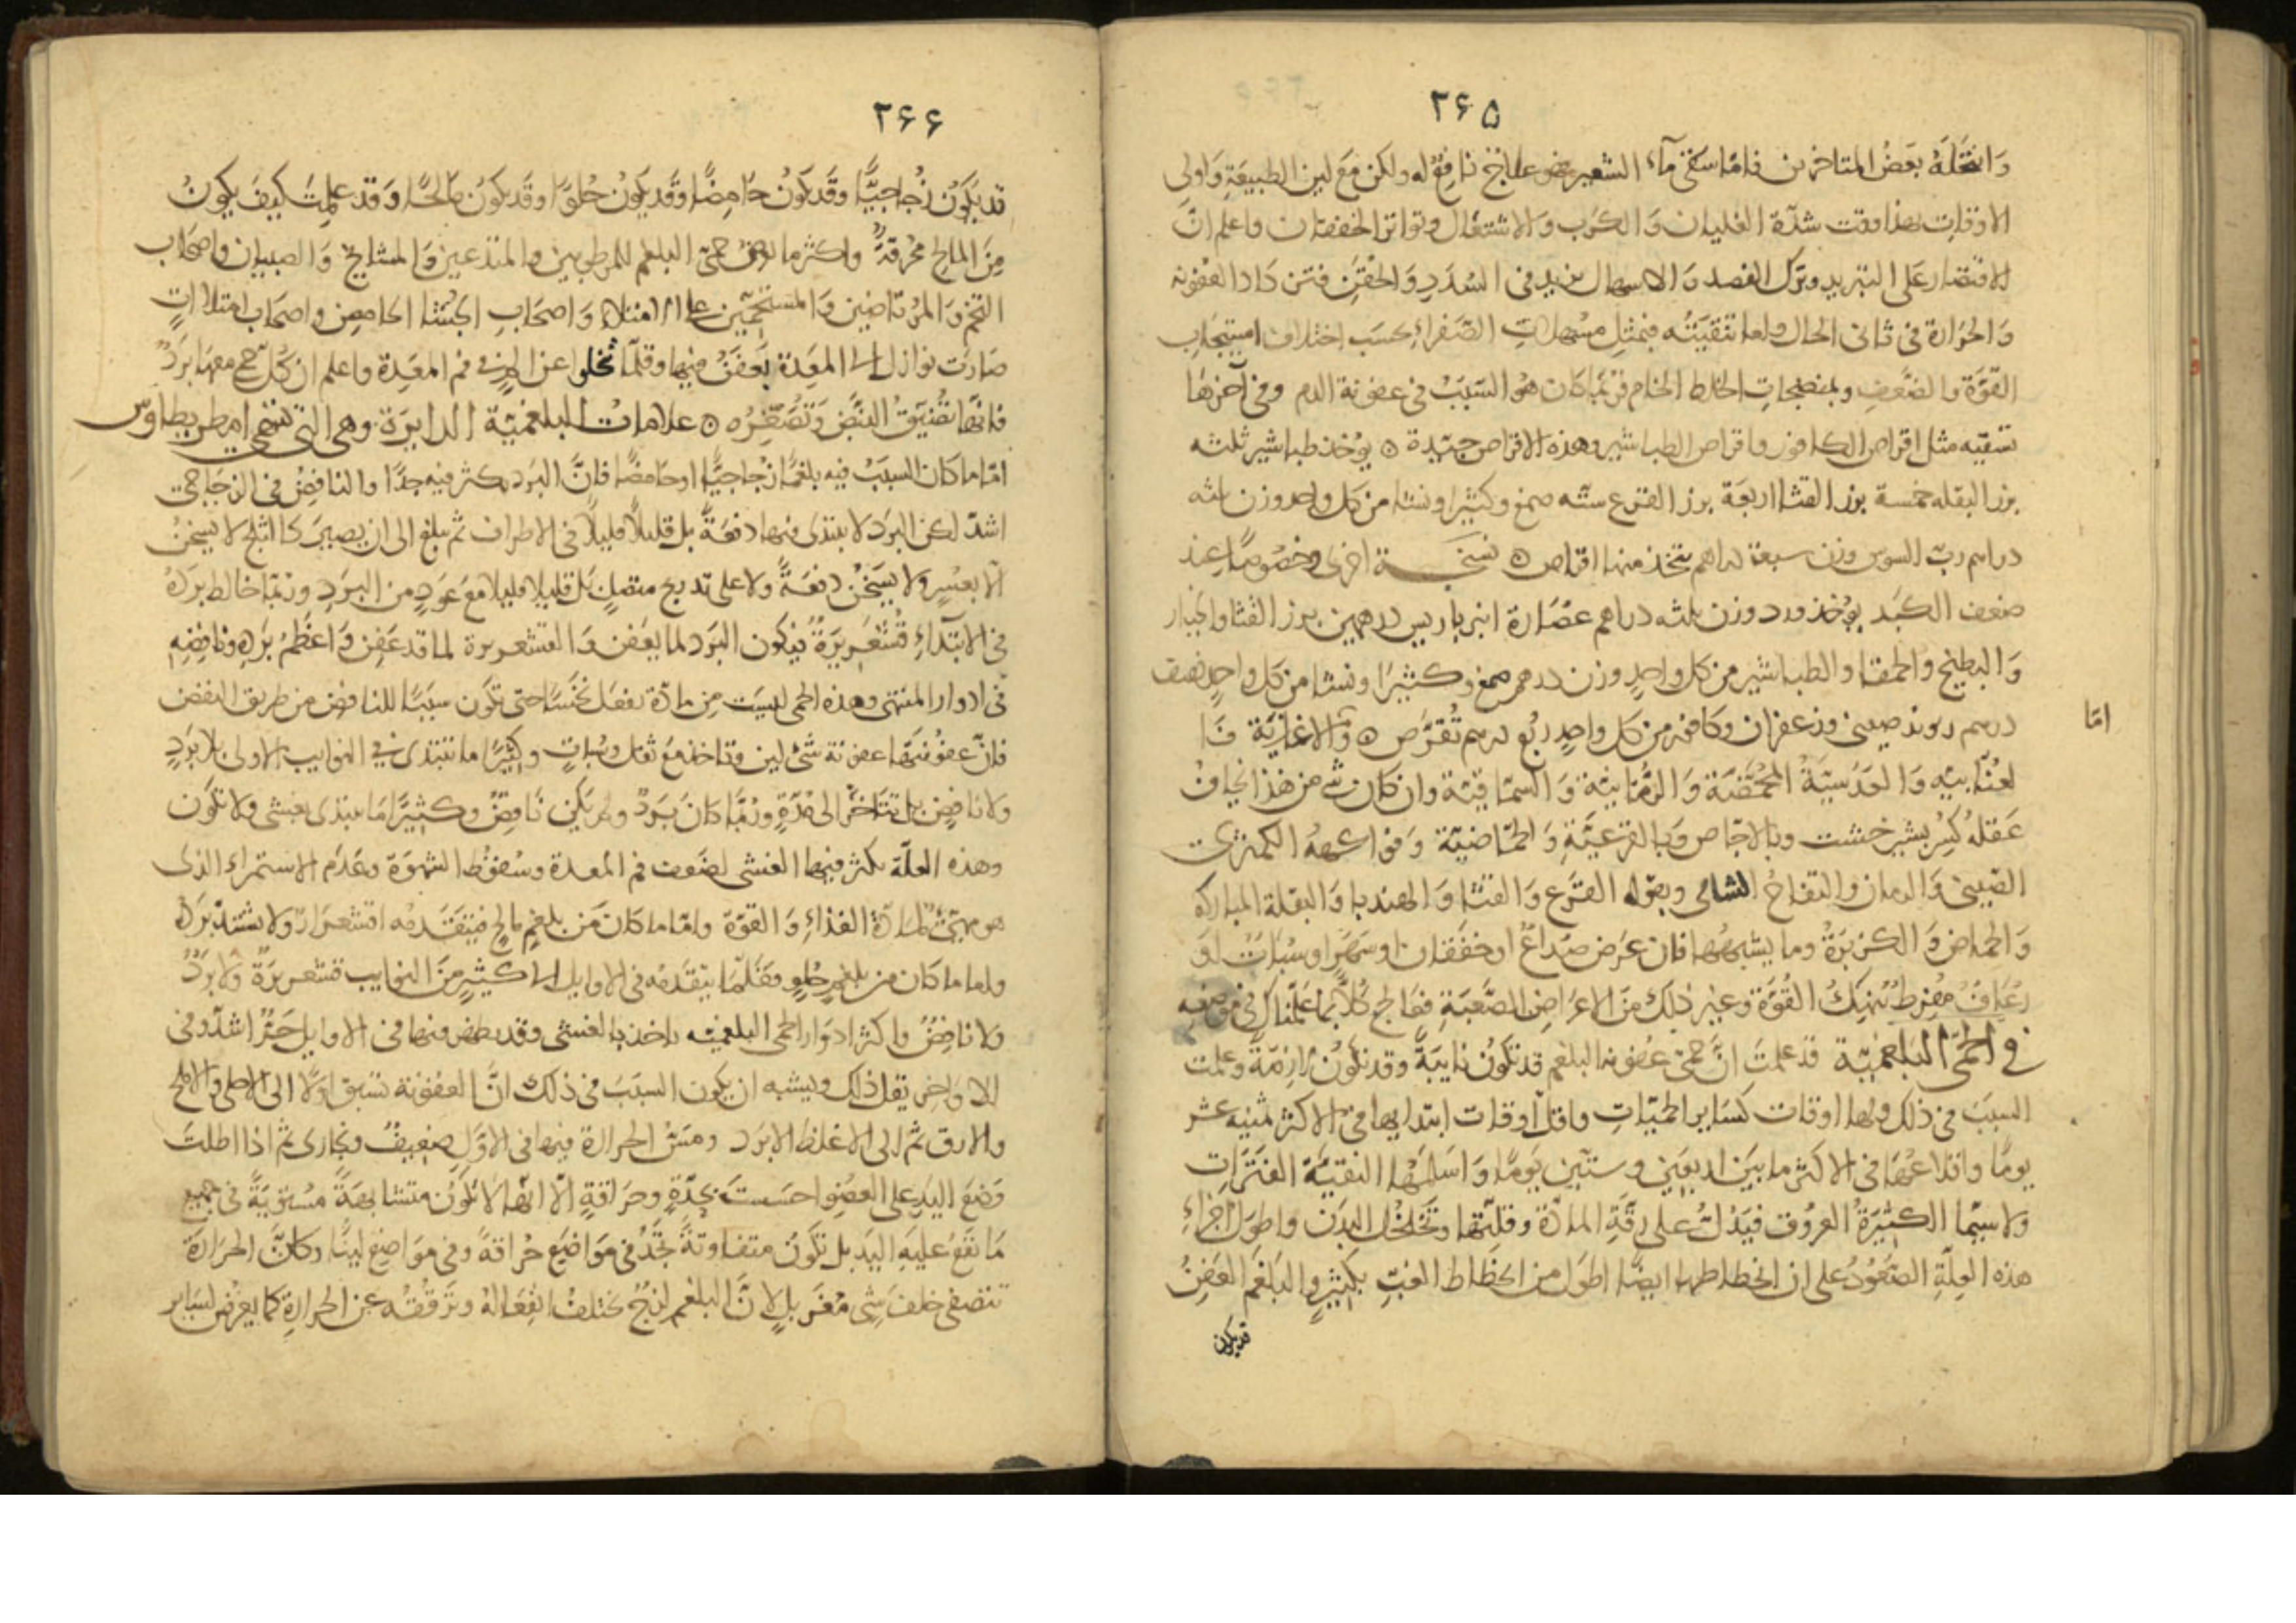 ٢۶۵
وَانتحلَهُ بعَضُ المتاخرين فامّا سَقى مآء الشعير فهو علاج نافع له ولكن مَعَ لين الطبيعَةِ وَاولى
الاوقات بهذا وقت شدّة الغليان وَالكرب وَالاشتعال وتواتر الخفقان واعلم انّ
الاقتصار على التبريد وترك الفصد وَالاسهال يزيد فى السُدَدِ وَالحقن فتزداد العفونة
وَالحرارة فى ثانى الحال واما تنقيَتُه فبمثلِ مسهلات الصَفراءِ بحسَب اختلاف استيجاب
القوّة والضعُف وبمنضجاتِ الخلط الخام فربمّا كان هُوَ السَبَبُ فى عفونة الدم وفى آخرها
تسقيه مثل اقراص الكافور واقراص الطباشير وهذه الاقراص جيّدة ۞ يوخذ طباشير ثلثه
بزر البقله خمسة بزر القثا اربعَة بزر القرع ستّه صمغ وكثيرا ونشا من كل واحد وزن ثلثه
دراهم ربّ السوس وزن سبعة دراهم يتخذ منها اقراص ۞ نسخـــة اخرى وخصُوصًا عند
ضعف الكبَد يؤخذ ورد وزن ثلثه دراهم عصَارة انبرباريس درهمين بزر القثا والخيار
وَالبطيخ والحمقا والطباشير من كل واحدٍ وزن درهم صمغ وكثيرَا ونشا من كل واحدٍ نصف
درهم روند صينى وزعفران وكافور من كل واحدٍ ربُع درهم تُقَرَّص ۞ وَالاغذيَة فَا
امّا
لعُنّابيّه وَالعَدَسيّةُ المُحَمَّضَة وَالرُمّانيّة وَالسمّاقيّة وان كان شى من هذا يُخاف
عَقلهُ كُسِرَ بشير خشت وبالاجّاص وَبالقرعيَّةِ وَالحمّاضيّة وَفواكهُهُ الكمثرى
الصّينى وَالرمان والتفاحُ الشامى وبقوله القرَع وَالقثا وَالهندبا وَالبقلة المباركه
وَالحماض وَالكزبَرَةُ وما يشبههُا فان عرَض صدَاعٌ او خفقان او سَهَر او سُبَات اوَ
رُعَافٌ مفرطٌ يُنهِكُ القُوَّة وَغير ذلك مَن الاعرَاض الصَّعبَةِ فعَالج كُلّاً بما علمّناك فى موضعه
فى الحمّى البَلغميّة قد علمتَ انَّ حمّى عفونة البلغم قد تكونُ نايبَةً وقد تكونُ لازمةً وعلمت
السبَب فى ذلك ولها اوقات كسَاير الحميّاتِ واقلّ اوقات ابتدايها فى الاكثر ثمنيه عشر
يومًا واقلاعهَا فى الاكثر ما بَين اربعَين وستّين يَومًا وَاسَلمهَا النقيّةَ الفَتَرَات
ولا سيّما الكثيرَةُ العرُوق فيَدُلُّ على رقَّةِ المادّة وقلّتها وتَخَلخُل البدَن واطول اجزاءِ
هذه العلّةِ الصُعَوُدُ على ان انحطاطها ايضًا اطوَل من انحَطاط الغبّ بكثيرٍ والبَلغَم العَفِنُ
قد يكون
٢۶۶
قد يكَونُ زُجاجيًّا وقَد يكونُ حَامِضًا وقَد يكَونُ حُلوًا وقَد يكونُ مَالحًا وَقد علمِتَ كيفَ يكونُ
مِنَ المالحِ محُرِقةً واكثر ما تعرض حمّى البلغم للمرطوبين والمتدعين وَالمشايخ وَالصبيان واصحَاب
التخم وَالمُرتاضين وَالمستحمّين على الامتلاء وَاصحَابِ الجُشا الحامِض واصحَاب امتلاءاتٍ
صَارَت نوازل الى المعدة تَعفَن فيها وقلّما تخلوا عن الم فى فم المعَدة واعلم ان كلّ حمّى معهَا بَردٌ
فانّها تُضَيّقُ النبَّض وَتُصَّغِرُه ۞ علامات البلغميّة الدايرَة وهى التى تسمى امطريطاوس
امّا ما كان السبَبُ فيه بلغمًا زُجاجيًّا او حَامضًا فانَّ البَرد يكثر فيه جدًّا والنافِضُ فى الزجَاجى
اشدّ لكن البَرد لا يبتدى فيها دفعَةً بل قليلًا قليلاً فى الاطراف ثم يبلغ الى ان يصيَرَ كالثلج لا يسخنُ
الّا بعُسِرٍ ولا يسَخُن دفعَةً ولا على تدريج متصلٍ بَل قليلا قليلا مَعَ عَودٍ من البَردِ وربمّا خالط بردهُ
فى الابتداءِ قُشَعَرِيرَةٌ فيكون البَرد لما يعَفن وَالقشعريرة لما قد عَفن وَاعظَمُ بَردِه ونافِضِهِ
فى ادوار المنتهى وهذه الحمى ليسَت مِن مادّة تفعَل نَخسًا حتى تكَون سبَبًا للنافض من طريق النفض
فانّ عفونتها عفونة شئ لين وتاخذ مَع ثقل وسُباتٍ وكثيرًا ما تبتدى فى النوايب الاولى بلا بَردٍ
ولا نافضٍ بل تتاخر الى مُدّةٍ ورُبمَّا كانَ بَردٌ ولم يكن نَافِضٌ وكثيرًا مَا يبتدى بغشى ولا تكَون
وهذه العلّة يكثر فيها الغشى لضعف فم المعدة وسُقوُط الشهوَة وعَدَم الاستمراءِ الذى
هو مهيّئ لمادّة الغذاءِ وَالقوّة وامّا ما كان من بلغمٍ مالح فيتقدمه اقشعرارٌ ولا يشتد بَرده
واما ما كان من بلغمٍ حُلوٍ فقلّمَا يتقدمُه فى الاوايل الى كثيرٍ من النوايب قشعريرةٌ ولا بَردٌ
ولا نافضٌ واكثر ادوَار الحمى البلغميّه ياخذ بالغشى وقد يظهر فيها فى الاوايل حَرٌّ اشدّ وفى
الاواخر يقل ذلك ويشبه ان يكون السبَبَ فى ذلك انَّ العفونة تسبق اوّلًا الى الاحلى والاملح
والارق ثم الى الاغلظ الابرَد ومسّ الحرارة فيها فى الاوّل ضعيفٌ بُخارى ثم اذا اطلتَ
وَضعَ اليدِ على العضُو احسَستَ بحِدّةٍ وحرَاقةٍ الّا انهّا لا تكَوُن متشابهةً مُستوَيَةً فى جميع
مَا تقَعُ عليَه اليَد بل تكَونُ متفاوتةً تَجدُ فى موَاضِعَ حُراقةً وفى موَاضِعَ لينًا وكانَّ الحَرارَة
تتصفى خلفَ شىٍ مُغَربلٍ لانَّ البلغم لزجٌ يختلفُ انفِعَالهُ وترقّقُه عن الحرارَةِ كما يعرُض لسَاير